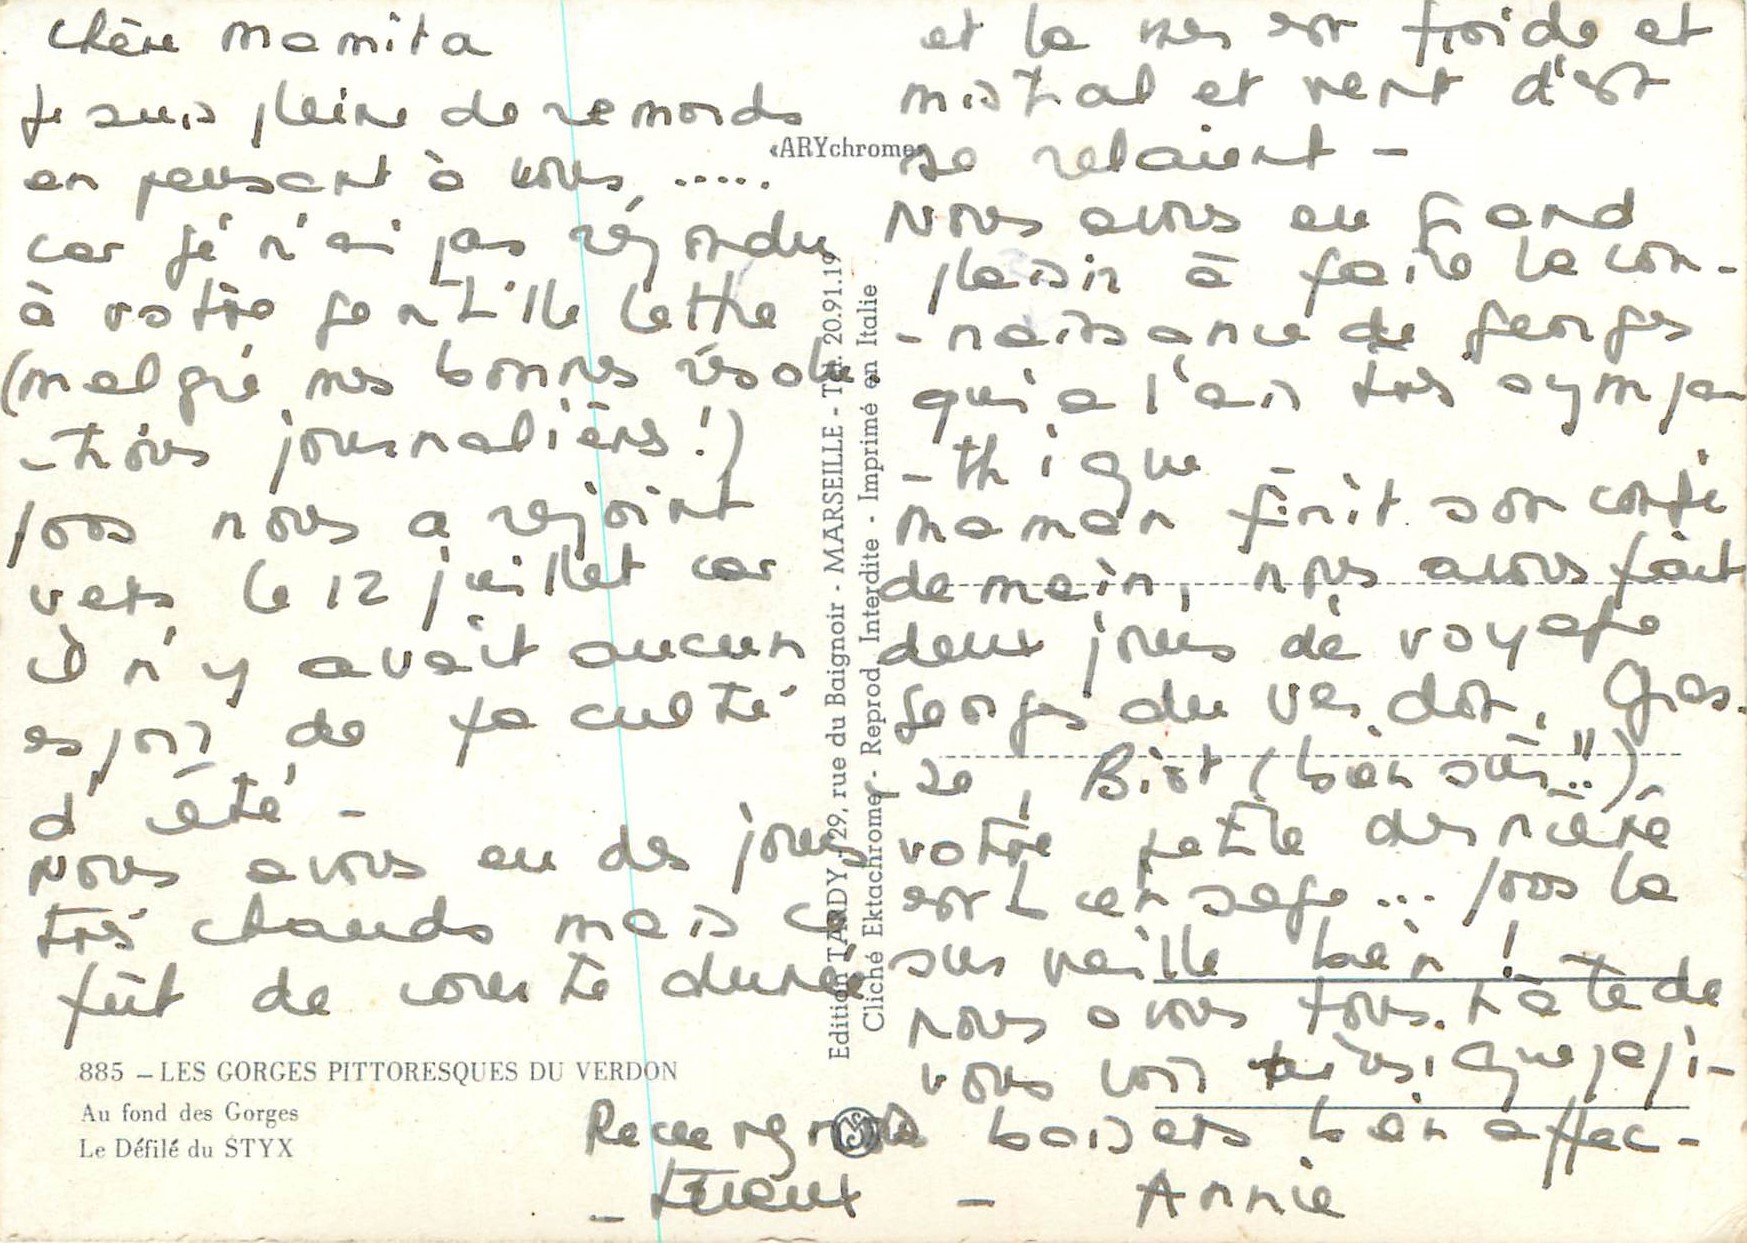 Chère Mamita
Je suis pleine de remords
en pensant à vous .....
car je n'ai pas répondu
à votre gentille lettre
(malgré mes bonnes résolu
-tions journalières !)
nous a rejoint
vers le 12 juillet car
il n'y avait aucun
espoir de faculté
d'été -
Nous avons eu des jours
très chauds mais ce
fût de courte durée
et la mer est froide et
mistral et vent d'est
se relaient -
Nous avons eu grand
plaisir à faire la con-
-naissance de Georges
qui a l'air très sympa
-thique -
Maman finit son congé
demain, nous avons fait
deux jours de voyage
gorges du Verdon, Gras.
se, Biot (bien sûr !!).
votre petite dernière
est bien sage ... la
surveille bien !
nous avons tous hâte de
vous voir ainsi que papi-
Recevez baisers bien affec-
-tueux - Annie
«ARYchrome»
Edition TARDY, 29, rue du Baignoir - MARSEILLE - Tél. 20.91.19
Cliché Ektachrome - Reprod. Interdite - Imprimé en Italie
885 - LES GORGES PITTORESQUES DU VERDON
Au fond des Gorges
Le Défilé du STYX